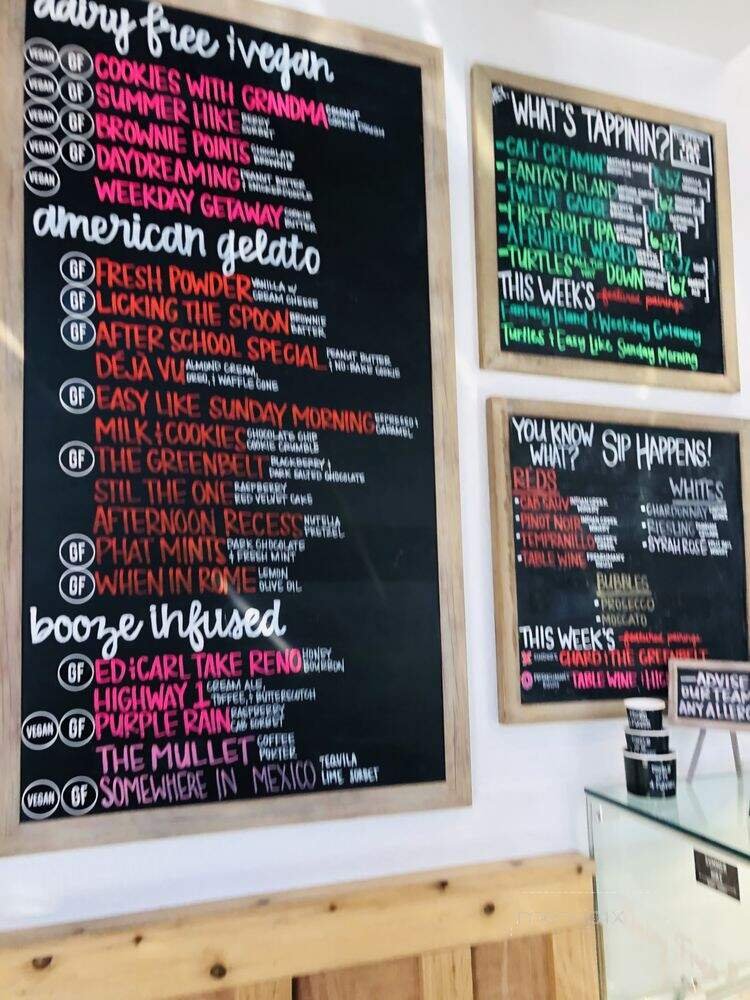 dairy free & vegan
VEGAN GF COOKIES WITH GRANDMA COCONUT COOKIE DOUGH
VEGAN GF SUMMER HIKE BERRY SORBET
VEGAN GF BROWNIE POINTS CHOCOLATE BROWNIE
VEGAN GF DAYDREAMING PEANUT BUTTER
VEGAN WEEKDAY GETAWAY COOKIE BUTTER
american gelato
GF FRESH POWDER VANILLA W/ CREAM CHEESE
GF LICKING THE SPOON BROWNIE BATTER
GF AFTER SCHOOL SPECIAL PEANUT BUTTER & NO-BAKE COOKIE
DÉJÀ VU ALMOND CREAM, OREO, & WAFFLE CONE
GF EASY LIKE SUNDAY MORNING ESPRESSO & CARAMEL
MILK & COOKIES CHOCOLATE CHIP COOKIE CRUMBLE
GF THE GREENBELT BLACKBERRY & DARK SALTED CHOCOLATE
STIL THE ONE RASPBERRY RED VELVET CAKE
AFTERNOON RECESS NUTELLA PRETZEL
GF PHAT MINTS DARK CHOCOLATE & FRESH MINT
GF WHEN IN ROME LEMON OLIVE OIL
booze infused
GF ED & CARL TAKE RENO HONEY BOURBON
HIGHWAY 1 CREAM ALE, TOFFEE, & BUTTERSCOTCH
VEGAN GF PURPLE RAIN RASPBERRY CAB SORBET
THE MULLET COFFEE PORTER
VEGAN GF SOMEWHERE IN MEXICO TEQUILA LIME SORBET
WHAT'S TAPPININ?
CALI CREAMIN'
FANTASY ISLAND 6%
TWELVE GAUGE 10%
FIRST SIGHT IPA 6.3%
A FRUITFUL WORLD
TURTLES ALL THE WAY DOWN 6%
THIS WEEK'S featured pairings
Fantasy Island & Weekday Getaway
Turtles & Easy Like Sunday Morning
YOU KNOW WHAT? SIP HAPPENS!
REDS
CAB SAUV
PINOT NOIR
TEMPRANILLO
TABLE WINE
WHITES
CHARDONNAY
RIESLING
SYRAH ROSÉ
BUBBLES
PROSECCO
MOSCATO
THIS WEEK'S featured pairings
CHARD & THE GREENBELT
TABLE WINE & HIG
ADVISE
OUR TEAM
ANY ALLER